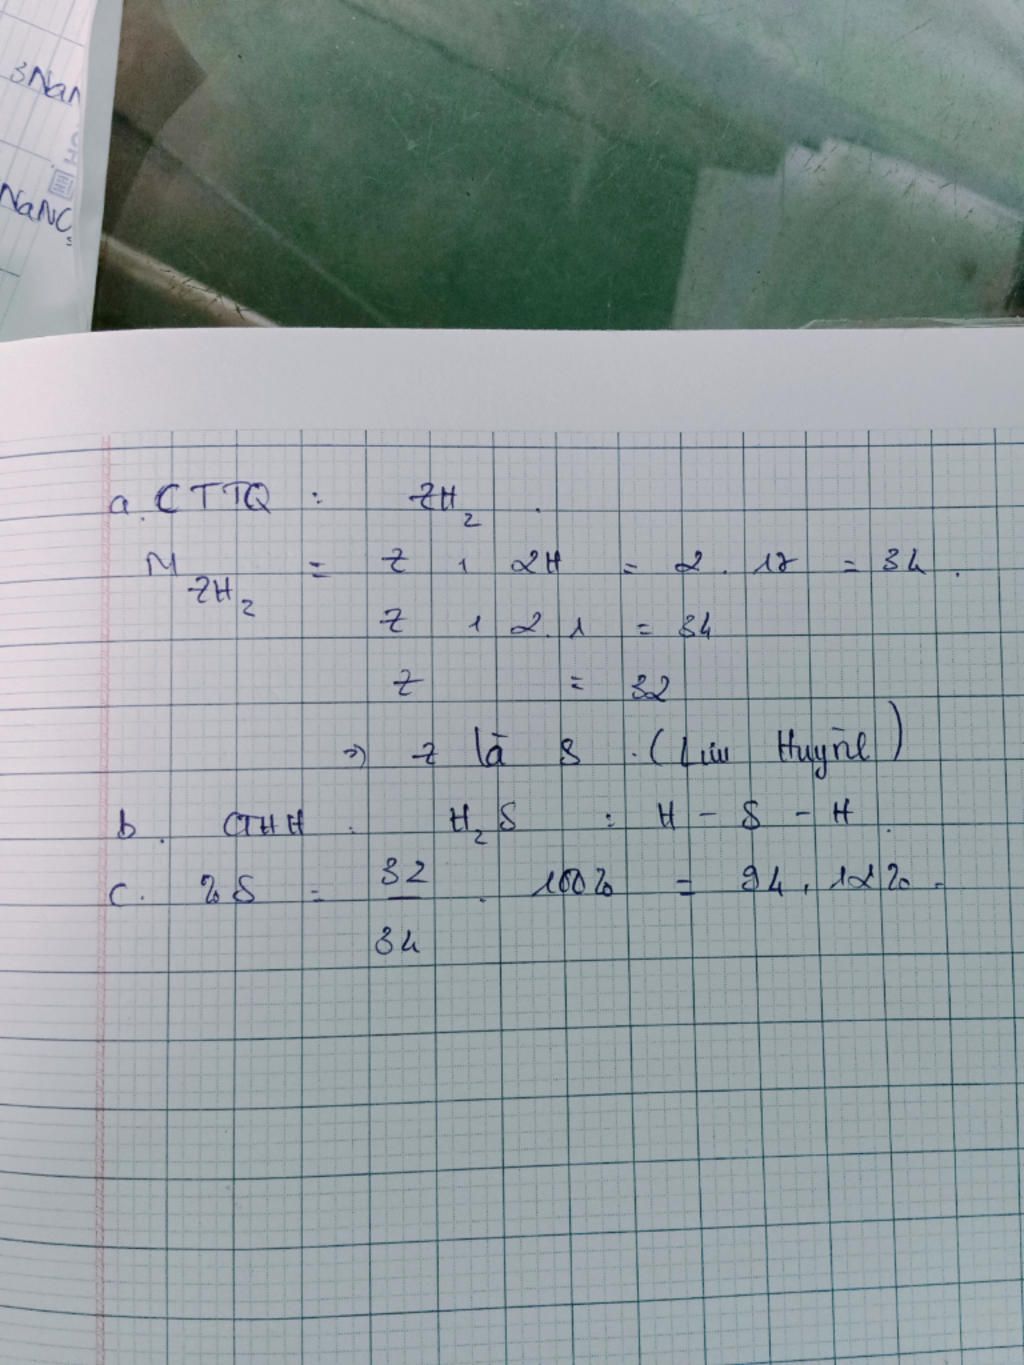 3NaN
NaNO3
a. CTTQ : ZH2 .
MZH2 = Z + 2H = 2 . 17 = 34 .
Z + 2.1 = 34
Z = 32
=> Z là S . (Lưu Huỳnh)
b. CTHH : H2S : H - S - H .
c. %S = 32/34 . 100% = 94,12% .